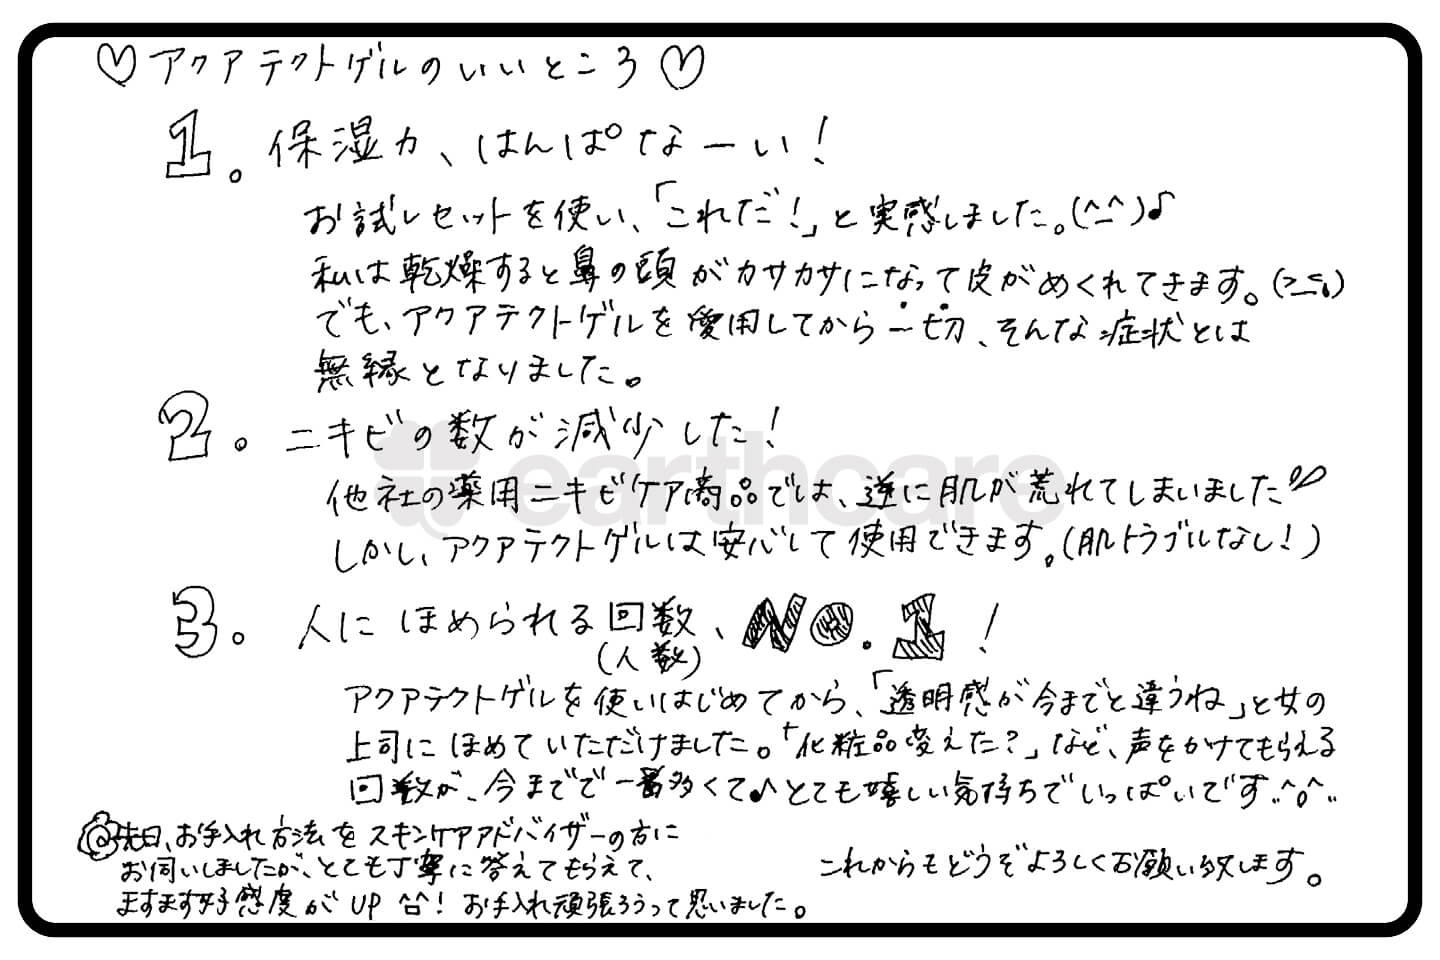 ♡アクアテクトゲルのいいところ♡
1。保湿力、はんぱなーい！
お試しセットを使い、「これだ！」と実感しました。(^-^)♪
私は乾燥すると鼻の頭がカサカサになって皮がめくれてきます。(>_<)
でも、アクアテクトゲルを愛用してから一切、そんな症状とは
無縁となりました。
2。ニキビの数が減少した！
earthcare
他社の薬用ニキビケア商品では、逆に肌が荒れてしまいました
しかし、アクアテクトゲルは安心して使用できます。(肌トラブルなし！)
3。人にほめられる回数、NO.1！
(人数)
アクアテクトゲルを使いはじめてから、「透明感が今までと違うね」と女の
上司にほめていただけました。「化粧品変えた？」など、声をかけてもらえる
回数が、今までで一番多くて♪とても嬉しい気持ちでいっぱいです^o^
先日、お手入れ方法をスキンケアアドバイザーの方に
お伺いしましたが、とても丁寧に答えてもらえて、
ますます好感度がUP ^^! お手入れ頑張ろうって思いました。
これからもどうぞよろしくお願い致します。